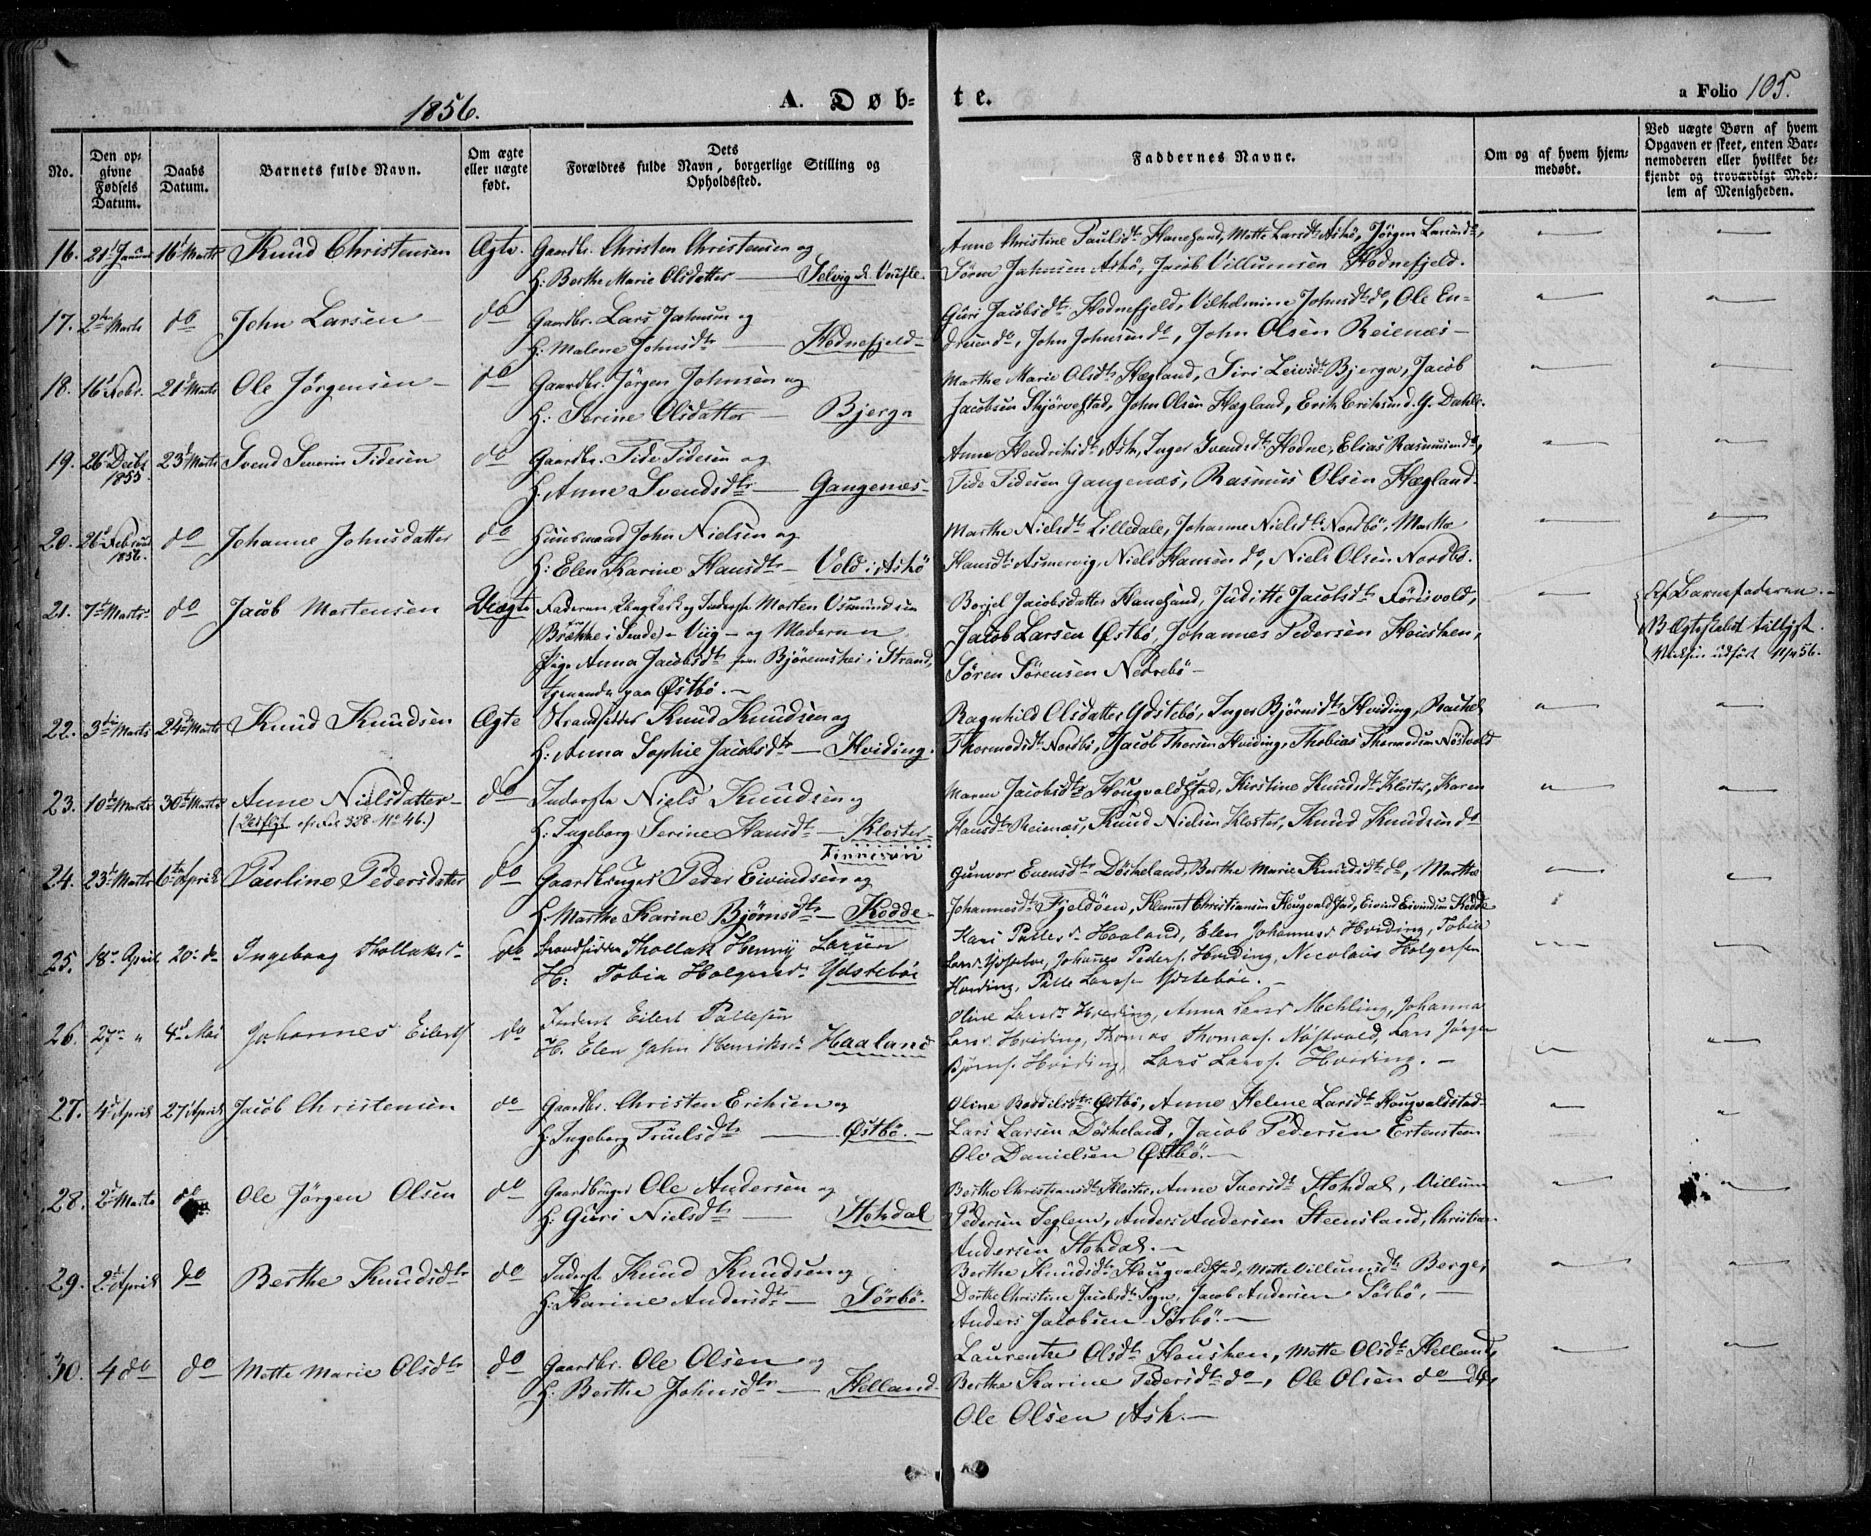 1856.
A. Døb-
te.
a Folio 105.
No.
Den op-
givne
Fødsels
Datum.
Daabs
Datum.
Barnets fulde Navn.
Om ægte
eller uægte
født.
Dets
Forældres fulde Navn, borgerlige Stilling og
Opholdssted.
Faddernes Navne.
Om og af hvem hjem-
medøbt.
Ved uægte Børn af hvem
Opgaven er skeet, enten Bar-
nemoderen eller hvilket be-
kjendt og troværdigt Med-
lem af Menigheden.
16. 21 Januar 16 Marts Knud Christensen Ægte. Gaardbr. Christen Christensen og
H: Berthe Marie Olsdatter — Selvig
Anne Christine Paulsdtr Hanesand, Mette Larsdtr Askø, Jørgen
Sören Jahnsen Askö, Jacob Villumsen Hodnefjeld.
17. 2 Marts do John Larsen — do Gaardbr. Lars Jahnsen og
H: Malene Johnsdtr — Hodnefjeld
Guri Jacobsdtr Hodnefjeld, Vilhelmine Johnsdtr do, Ole En-
dresen do, John Johnsen do, John Olsen Reienæs —
18. 16 Febr. 21 Marts Ole Jørgensen — do Gaardbr. Jørgen Johnsen og
H: Serine Olsdatter — Bjerga
Marthe Marie Olsdtr Hægland, Siri Leivsdtr Bjerga, Jacob
Jacobsen Skjørvestad, John Olsen Hægland, Erik Eriksen d. y. Dahle.
19. 26 Decbr 1855. 23 Marts Svend Severin Tidesen do Gaardbr. Tide Tidesen og
H: Anne Svendsdtr — Gangenæs —
Anne Hendriksdtr Ask, Inger Svendsdtr Hodne, Elias Rasmussen do,
Tide Tidesen Gangenæs, Rasmus Olsen Hægland.
20. 26 Februar 1856. do Johanne Johnsdatter do Huusmand John Nielsen og
H: Elen Karine Hansdtr — Vold i Askö
Marthe Nielsdtr Lilledale, Johanne Nielsdtr Nordbö, Marthe
Hansdtr Asmervig, Niels Hansen do, Niels Olsen Nordbö.
21. 7 Marts do Jacob Mortensen Uægte Faderen, Ungkarl og Inderste Morten Osmundsen
(Brekke i Sande) — Viig — og Moderen
Pige Anna Jacobsdtr fra Björemskei i Strand,
tjenende paa Østbö. —
Borjel Jacobsdatter Hanesand, Juditte Jacobsdtr Førisvold,
Jacob Larsen Østbö, Johannes Pedersen Housken,
Sören Sörensen Nedrebö —
Af Barnefaderen. —
22. 3 Marts 24 Marts Knud Knudsen Ægte Strandsidder Knud Knudsen og
H: Anna Sophie Jacobsdtr — Hviding.
Ragnhild Olsdatter Ydstebö, Inger Bjørnsdtr Hviding, Rachel
Thormodsdtr Nordbö, Jacob Thorsen Hviding, Thobias Thormodsen Nøstvold
23. 10 Marts 30 Marts Anne Nielsdatter — do Inderste Niels Knudsen og
328 No 46.)
H: Ingeborg Serine Hansdtr — Kloster
Maren Jacobsdtr Hougvaldstad, Kirstine Knudsdtr Kloster, Karen
Hansdtr Reienæs, Knud Nielsen Kloster, Knud Knudsen do
24. 23 Marts 6 April Pauline Pedersdatter do Gaardbruger Peder Eivindsen og
H: Marthe Karine Bjørnsdtr — Kodde —
Gunvor Evensdtr Dørkeland, Berthe Marie Knudsdtr do, Marthe
Johannesdtr Fjeldöen, Klemet Christiansen Hougvaldstad, Eivind Eivindsen Kodde
25. 18 April 20 do Ingeborg Thollaksdr do Strandsidder Thollak Henrij Larsen
H: Tobia Holgersdr Ydstebøe
Kari Pallesdr Haaland, Elen Johannesdr Hviding, Tobia
Larsdr Ydstebøe, Johannes Peders. Hviding, Nicolaus Holgersen
Hviding, Palle Larss. Ydstebøe. —
26. 27 " 4 Mai Johannes Eilerts do Inderst Eilert Pallesen
H. Elen Jahn Henriksdr Haaland
Oline Larsdr Hviding, Anna Larsdr Mechling, Johanna
Larsdr Hviding, Thomas Thomass. Nøstvold, Lars Jørgen
Bjørns. Hviding, Lars Larss. Hviding. —
27. 4 April 27 April Jacob Christensen do Gaardbr. Christen Eriksen og
H: Ingeborg Truelsdtr — Østbö. —
Oline Boddilsdtr Østbö, Anne Helene Larsdtr Hougvaldstad
Lars Larsen Dørkeland, Jacob Pedersen Ertensteen
Ole Danielsen Østbö. —
28. 2 Marts do Ole Jørgen Olsen do Gaardbruger Ole Andersen og
H: Guri Nielsdtr — Stohdal
Berthe Christiansdtr Kloster, Anne Iversdtr Stohdal, Villum
Pedersen Seglem, Anders Andersen Steensland, Christian
Andersen Stohdal. —
29. 2 April do Berthe Knudsdtr do Inderste Knud Knudsen og
H: Karine Andersdtr — Sörbö.
Berthe Knudsdtr Hougvaldstad, Mette Villumsdtr Berge,
Dorthe Christine Jacobsdtr Sogn, Jacob Andersen Sörbö, —
Anders Jacobsen Sörbö. —
30. 4 do do Mette Marie Olsdtr do Gaardbr. Ole Olsen og
H: Berthe Johnsdtr — Helland —
Laurentse Olsdtr Housken, Mette Olsdtr Helland,
Berthe Karine Pedersdtr do, Ole Olsen do
Ole Olsen Ask. —